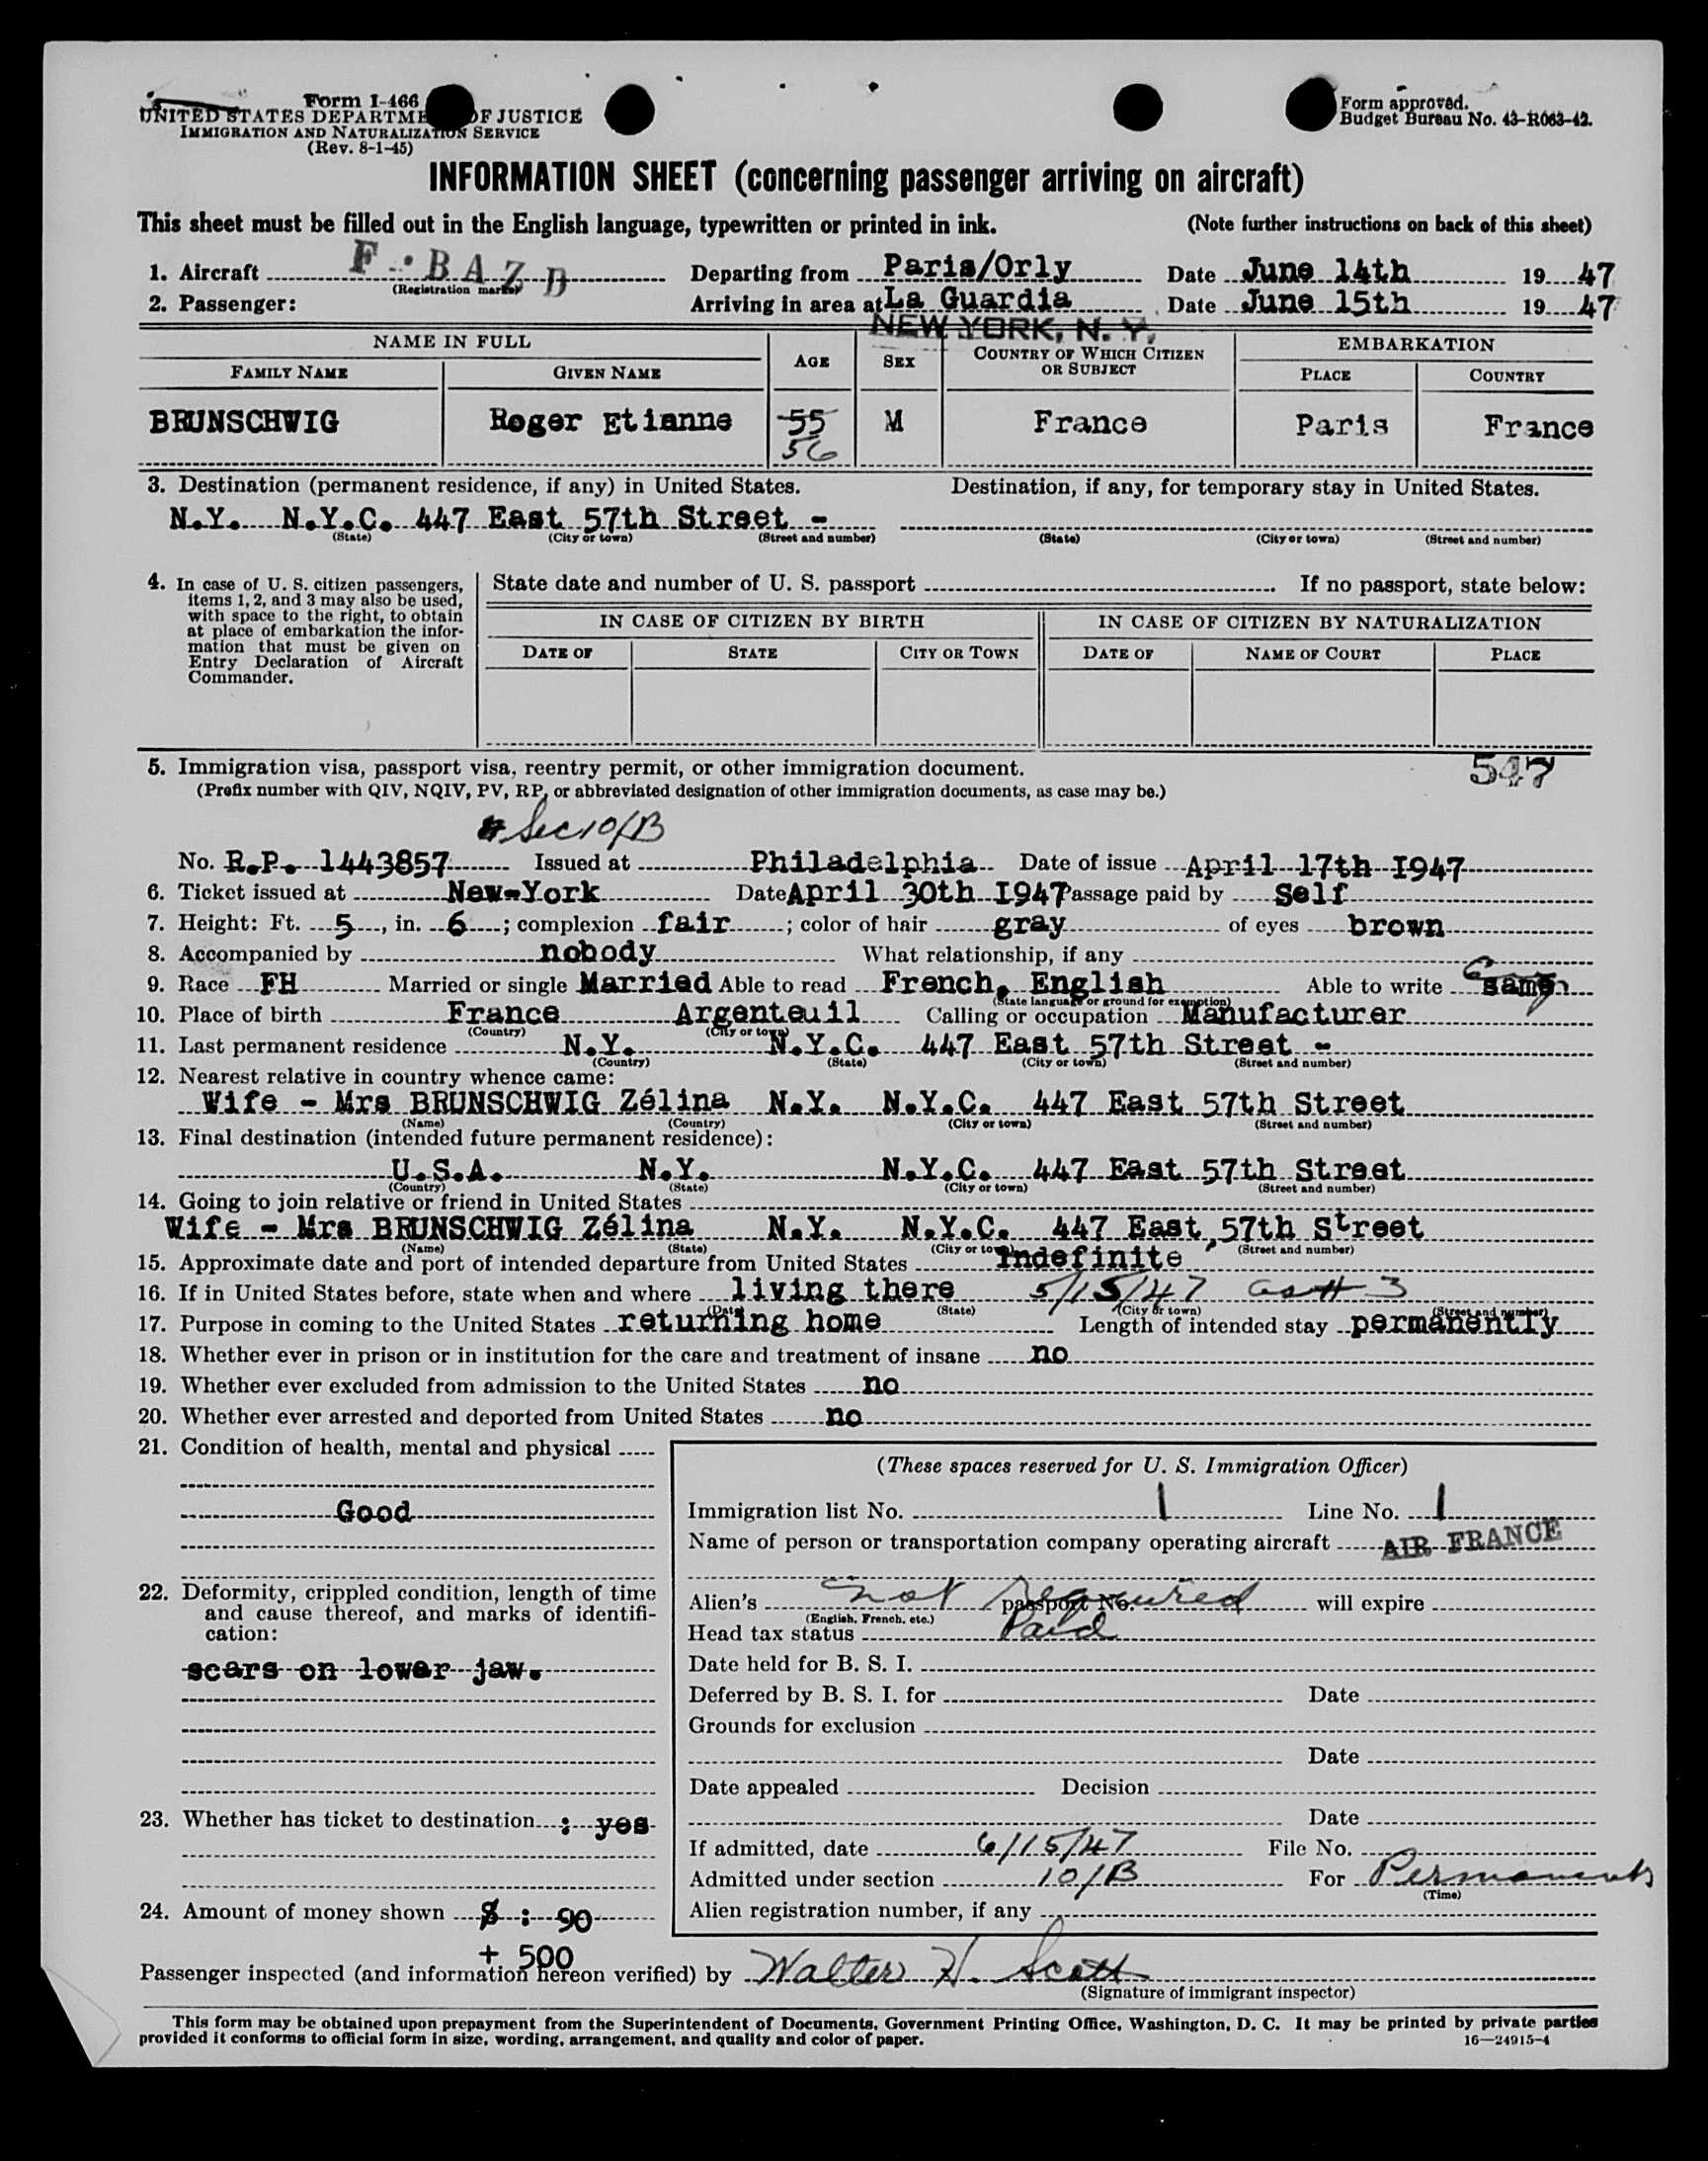 Form I-466
UNITED STATES DEPARTME OF JUSTICE
IMMIGRATION AND NATURALIZATION SERVICE
(Rev. 8-1-45)
Form approved.
Budget Bureau No. 43-R063-42.
INFORMATION SHEET (concerning passenger arriving on aircraft)
This sheet must be filled out in the English language, typewritten or printed in ink. (Note further instructions on back of this sheet)
1. Aircraft F·BAZD Departing from Paris/Orly Date June 14th 1947
(Registration marks)
2. Passenger: Arriving in area at La Guardia Date June 15th 1947
NEW YORK, N. Y.
NAME IN FULL AGE SEX COUNTRY OF WHICH CITIZEN OR SUBJECT EMBARKATION
FAMILY NAME GIVEN NAME PLACE COUNTRY
BRUNSCHWIG Roger Etienne 55 M France Paris France
56
3. Destination (permanent residence, if any) in United States. Destination, if any, for temporary stay in United States.
N.Y. N.Y.C. 447 East 57th Street -
(State) (City or town) (Street and number) (State) (City or town) (Street and number)
4. In case of U. S. citizen passengers,
items 1, 2, and 3 may also be used,
with space to the right, to obtain
at place of embarkation the infor-
mation that must be given on
Entry Declaration of Aircraft
Commander.
State date and number of U. S. passport . If no passport, state below:
IN CASE OF CITIZEN BY BIRTH IN CASE OF CITIZEN BY NATURALIZATION
DATE OF STATE CITY OR TOWN DATE OF NAME OF COURT PLACE
5. Immigration visa, passport visa, reentry permit, or other immigration document. 547
(Prefix number with QIV, NQIV, PV, RP, or abbreviated designation of other immigration documents, as case may be.)
Sec 10/B
No. R.P. 1443857 Issued at Philadelphia Date of issue April 17th 1947
6. Ticket issued at New-York Date April 30th 1947 Passage paid by Self
7. Height: Ft. 5, in. 6; complexion fair; color of hair gray of eyes brown
8. Accompanied by nobody What relationship, if any
9. Race FH Married or single Married Able to read French, English Able to write same
(State language or ground for exemption)
10. Place of birth France Argenteuil Calling or occupation Manufacturer
(Country) (City or town)
11. Last permanent residence N.Y. N.Y.C. 447 East 57th Street -
(Country) (State) (City or town) (Street and number)
12. Nearest relative in country whence came:
Wife - Mrs BRUNSCHWIG Zélina N.Y. N.Y.C. 447 East 57th Street
(Name) (Country) (City or town) (Street and number)
13. Final destination (intended future permanent residence):
U.S.A. N.Y. N.Y.C. 447 East 57th Street
(Country) (State) (City or town) (Street and number)
14. Going to join relative or friend in United States
Wife - Mrs BRUNSCHWIG Zélina N.Y. N.Y.C. 447 East 57th Street
(Name) (State) (City or town) (Street and number)
15. Approximate date and port of intended departure from United States Indefinite
16. If in United States before, state when and where living there 5/15/47
(Date) (State) (City or town) (Street and number)
17. Purpose in coming to the United States returning home Length of intended stay permanently
18. Whether ever in prison or in institution for the care and treatment of insane no
19. Whether ever excluded from admission to the United States no
20. Whether ever arrested and deported from United States no
21. Condition of health, mental and physical
Good
22. Deformity, crippled condition, length of time
and cause thereof, and marks of identifi-
cation:
scars on lower jaw.
23. Whether has ticket to destination : yes
24. Amount of money shown $ : 90
+ 500
(These spaces reserved for U. S. Immigration Officer)
Immigration list No. 1 Line No. 1
Name of person or transportation company operating aircraft AIR FRANCE
Alien's not required passport No. will expire
(English, French, etc.)
Head tax status Paid
Date held for B. S. I.
Deferred by B. S. I. for Date
Grounds for exclusion
Date
Date appealed Decision
Date
If admitted, date 6/15/47 File No.
Admitted under section 10/B For Permanent
(Time)
Alien registration number, if any
Passenger inspected (and information hereon verified) by Walter H. Scott
(Signature of immigrant inspector)
This form may be obtained upon prepayment from the Superintendent of Documents, Government Printing Office, Washington, D. C. It may be printed by private parties
provided it conforms to official form in size, wording, arrangement, and quality and color of paper. 16—24915-4